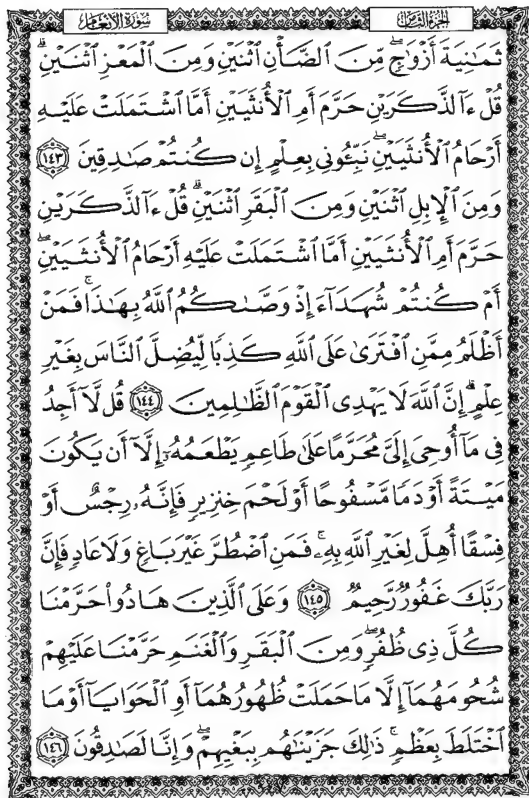 سُورَةُ الأَنْعَام
الجُزْءُ الثَّامِنُ
ثَمَٰنِيَةَ أَزْوَٰجٍۖ مِّنَ ٱلضَّأْنِ ٱثْنَيْنِ وَمِنَ ٱلْمَعْزِ ٱثْنَيْنِۗ
قُلْ ءَآلذَّكَرَيْنِ حَرَّمَ أَمِ ٱلْأُنثَيَيْنِ أَمَّا ٱشْتَمَلَتْ عَلَيْهِ
أَرْحَامُ ٱلْأُنثَيَيْنِۖ نَبِّـُٔونِى بِعِلْمٍ إِن كُنتُمْ صَٰدِقِينَ ١٤٣
وَمِنَ ٱلْإِبِلِ ٱثْنَيْنِ وَمِنَ ٱلْبَقَرِ ٱثْنَيْنِۗ قُلْ ءَآلذَّكَرَيْنِ
حَرَّمَ أَمِ ٱلْأُنثَيَيْنِ أَمَّا ٱشْتَمَلَتْ عَلَيْهِ أَرْحَامُ ٱلْأُنثَيَيْنِۖ
أَمْ كُنتُمْ شُهَدَآءَ إِذْ وَصَّىٰكُمُ ٱللَّهُ بِهَٰذَاۚ فَمَنْ
أَظْلَمُ مِمَّنِ ٱفْتَرَىٰ عَلَى ٱللَّهِ كَذِبًا لِّيُضِلَّ ٱلنَّاسَ بِغَيْرِ
عِلْمٍۗ إِنَّ ٱللَّهَ لَا يَهْدِى ٱلْقَوْمَ ٱلظَّٰلِمِينَ ١٤٤ قُل لَّآ أَجِدُ
فِى مَآ أُوحِىَ إِلَىَّ مُحَرَّمًا عَلَىٰ طَاعِمٍ يَطْعَمُهُۥٓ إِلَّآ أَن يَكُونَ
مَيْتَةً أَوْ دَمًا مَّسْفُوحًا أَوْ لَحْمَ خِنزِيرٍ فَإِنَّهُۥ رِجْسٌ أَوْ
فِسْقًا أُهِلَّ لِغَيْرِ ٱللَّهِ بِهِۦۚ فَمَنِ ٱضْطُرَّ غَيْرَ بَاغٍ وَلَا عَادٍ فَإِنَّ
رَبَّكَ غَفُورٌ رَّحِيمٌ ١٤٥ وَعَلَى ٱلَّذِينَ هَادُوا۟ حَرَّمْنَا
كُلَّ ذِى ظُفُرٍۖ وَمِنَ ٱلْبَقَرِ وَٱلْغَنَمِ حَرَّمْنَا عَلَيْهِمْ
شُحُومَهُمَآ إِلَّا مَا حَمَلَتْ ظُهُورُهُمَآ أَوِ ٱلْحَوَايَآ أَوْ مَا
ٱخْتَلَطَ بِعَظْمٍۚ ذَٰلِكَ جَزَيْنَٰهُم بِبَغْيِهِمْۖ وَإِنَّا لَصَٰدِقُونَ ١٤٦